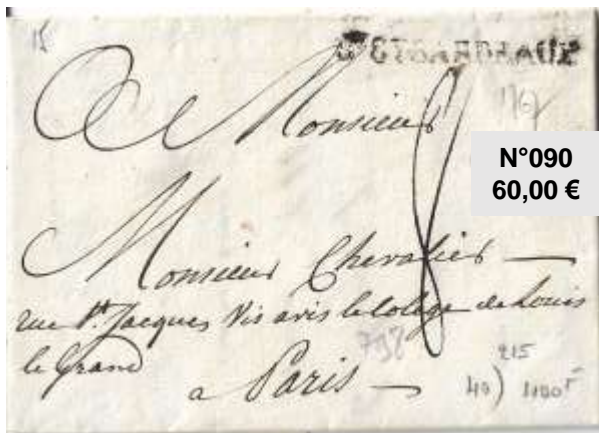 15
1767
A Monsieur
8
N°090
60,00 €
Monsieur Chevalier
rue St. Jacques Vis avis le Colege de Louis
le Grand
798
a Paris
215
40) 1100 F